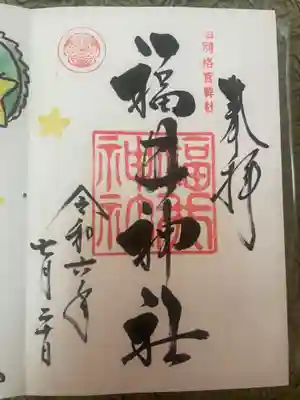 旧別格官幣社
奉拝
福井神社
福井
神社
令和六年
七月二十日